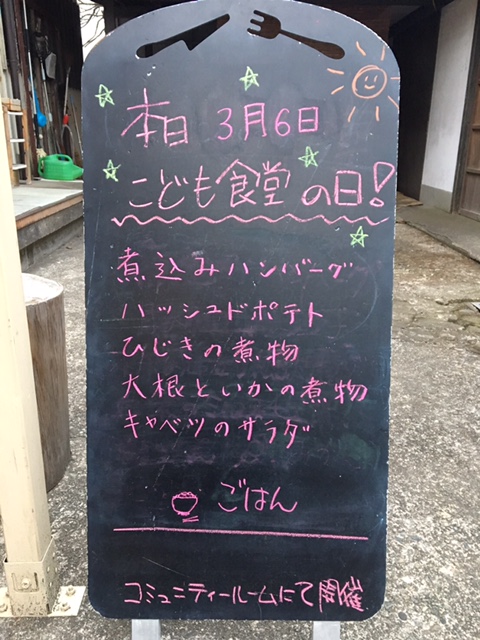 本日 3月6日
こども食堂の日!
煮込みハンバーグ
ハッシュドポテト
ひじきの煮物
大根といかの煮物
キャベツのサラダ
ごはん
コミュニティールームにて開催